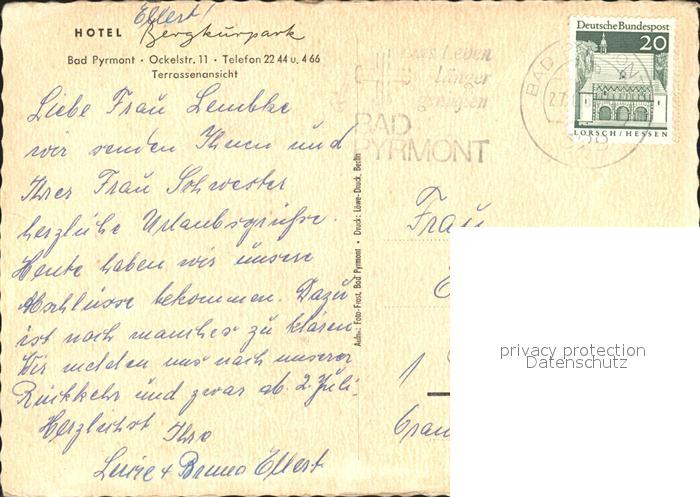 Ellert!
HOTEL Bergkurpark
Bad Pyrmont · Ockelstr. 11 · Telefon 22 44 u. 4 66
Terrassenansicht
Liebe Frau Lembke
wir senden Ihnen und
Ihrer Frau Schwester
herzliche Urlaubsgrüße.
Heute haben wir unsere
Abschlüsse bekommen. Dazu
ist noch manches zu klären
Wir melden uns nach unserer
Rückkehr und zwar ab. 2. Juli.
Herzlichst Ihre
Luise + Bruno Ellert
Aufn.: Foto-Frost, Bad Pyrmont • Druck: Löwe-Druck, Berlin
Das Leben
länger
genießen
BAD
PYRMONT
BAD PYRMONT
Deutsche Bundespost
20
LORSCH/HESSEN
Frau
1
privacy protection
Datenschutz